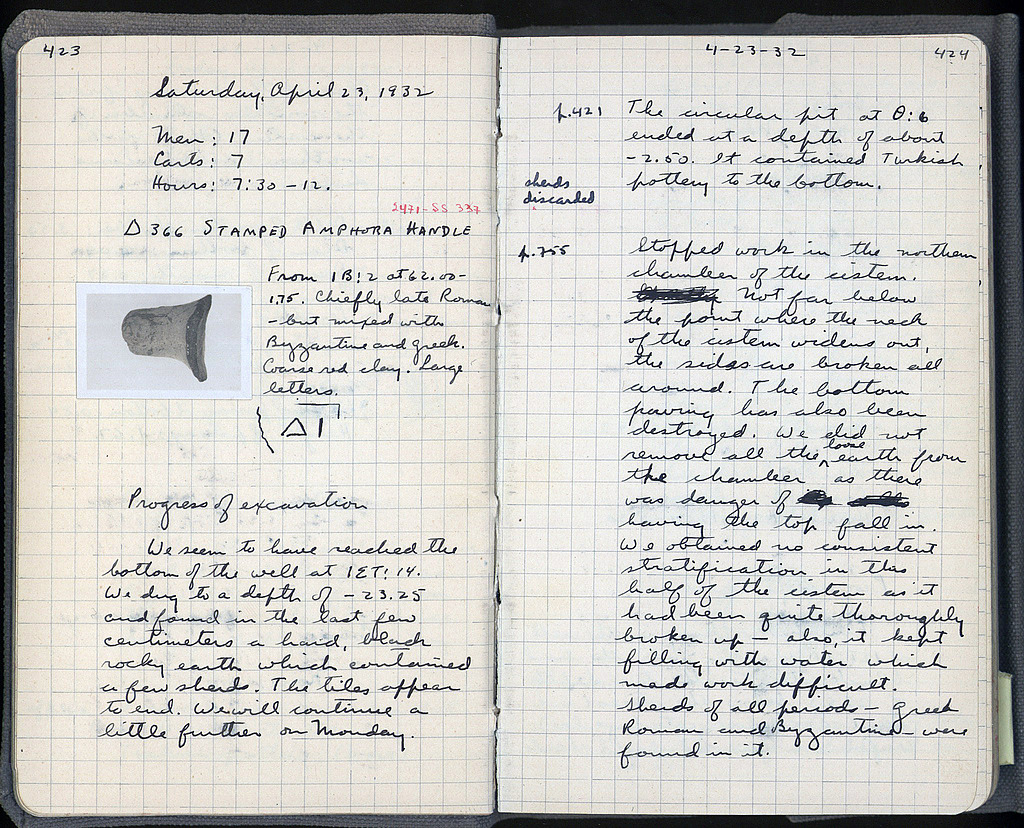 423
Saturday, April 23, 1932
Men: 17
Carts: 7
Hours: 7:30 - 12.
2471 - SS 337
Δ 366 STAMPED AMPHORA HANDLE
From 1B:2 at 62.00-
1.75. Chiefly late Roman
- but mixed with
Byzantine and Greek.
Coarse red clay. Large
letters.
ΔΙ
Progress of excavation
We seem to have reached the
bottom of the well at IET:14.
We dug to a depth of -23.25
and found in the last few
centimeters a hard, black
rocky earth which contained
a few sherds. The tiles appear
to end. We will continue a
little further on Monday.
4-23-32
424
p.421 The circular pit at Θ:6
ended at a depth of about
-2.50. It contained Turkish
pottery to the bottom.
sherds
discarded
p.755 Stopped work in the northern
chamber of the cistern.
Not far below
the point where the neck
of the cistern widens out,
the sides are broken all
around. The bottom
paving has also been
destroyed. We did not
remove all the loose earth from
the chamber as there
was danger of
having the top fall in.
We obtained no consistent
stratification in this
half of the cistern as it
had been quite thoroughly
broken up - also, it kept
filling with water which
made work difficult.
Sherds of all periods - Greek
Roman and Byzantine - were
found in it.